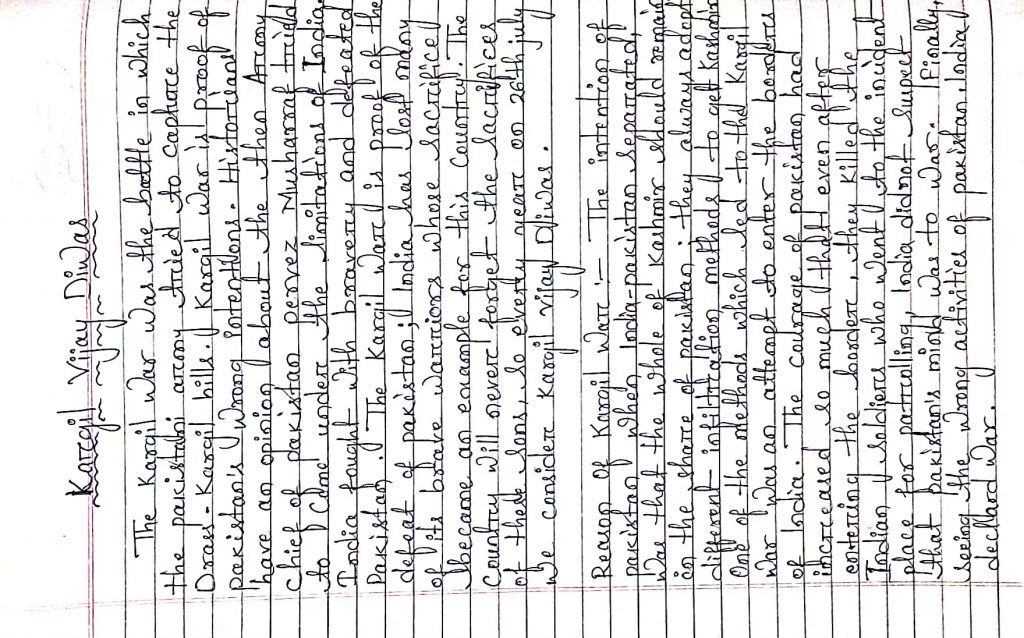 Kargil Vijay Diwas
The Kargil war was the battle in which
the pakistani army tried to capture the
Drass-Kargil hills. Kargil war is proof of
pakistan's wrong intentions. Historians
have an opinion about the then Army
chief of pakistan pervez Musharraf tried
to come under the limitations of India.
India fought with bravery and defeated
Pakistan. The Kargil war is proof of the
defeat of pakistan; India has lost many
of its brave warriors whose sacrifice
became an example for this country. The
Country will never forget the sacrifices
of these sons, so every year on 26th july
we consider Kargil vijay Diwas.
Reason of Kargil war :- The intention of
pakistan when India-pakistan separated,
was that the whole of Kashmir should remain
in the share of pakistan; they always adopt
different infiltration methods to get Kashmir
One of the methods which led to the Kargil
war was an attempt to enter the borders
of India. The courage of pakistan had
increased so much that even after
entering the border, they killed the
Indian soldiers who went to the incident
place for patrolling, India did not suspect
that pakistan's mind was to war. Finally,
seeing the wrong activities of pakistan, India
declard war.